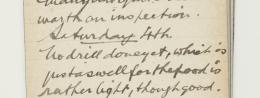 worth an inspection.
Saturday 4th.
No drill done yet, which is
just as well for the food is
rather light, though good.